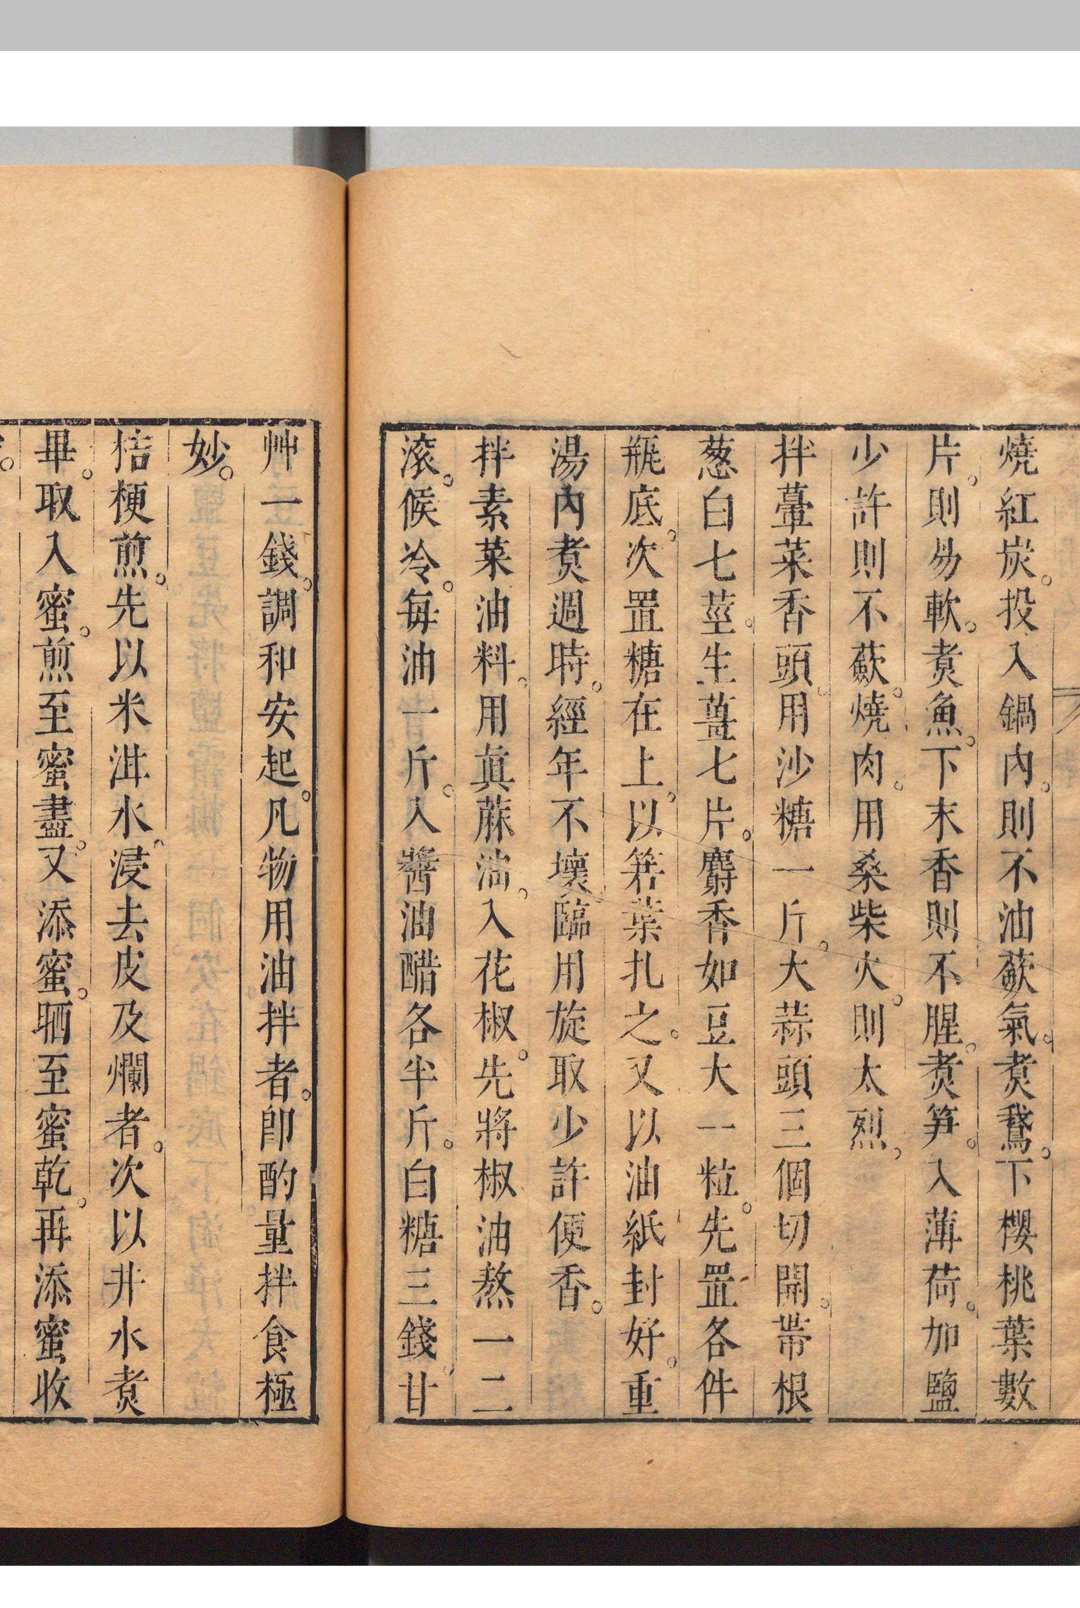 燒紅炭。投入鍋內。則不油蔹氣。煑鵞。下櫻桃葉數
片。則易軟。煑魚。下末香則不腥。煑笋。入薄荷。加鹽
少許則不蘞。燒肉。用桑柴火。則太烈。
拌薹菜香頭。用沙糖一斤。大蒜頭三個切開。帶根
葱白七莖。生薑七片。麝香如豆大一粒。先置各件
瓶底。次置糖在上。以箬葉扎之。又以油紙封好。重
湯內煑週時。經年不壞。臨用旋取少許便香。
拌素菜油料。用眞蔴油。入花椒。先將椒油熬一二
滚。候冷。每油一斤。入醬油醋各半斤。白糖三錢。甘
艸一錢。調和安起。凡物用油拌者。卽酌量拌食極
妙。
桔梗煎。先以米泔水。浸去皮及爛者。次以井水煑
畢。取入蜜。煎至蜜盡。又添蜜。晒至蜜乾。再添蜜收